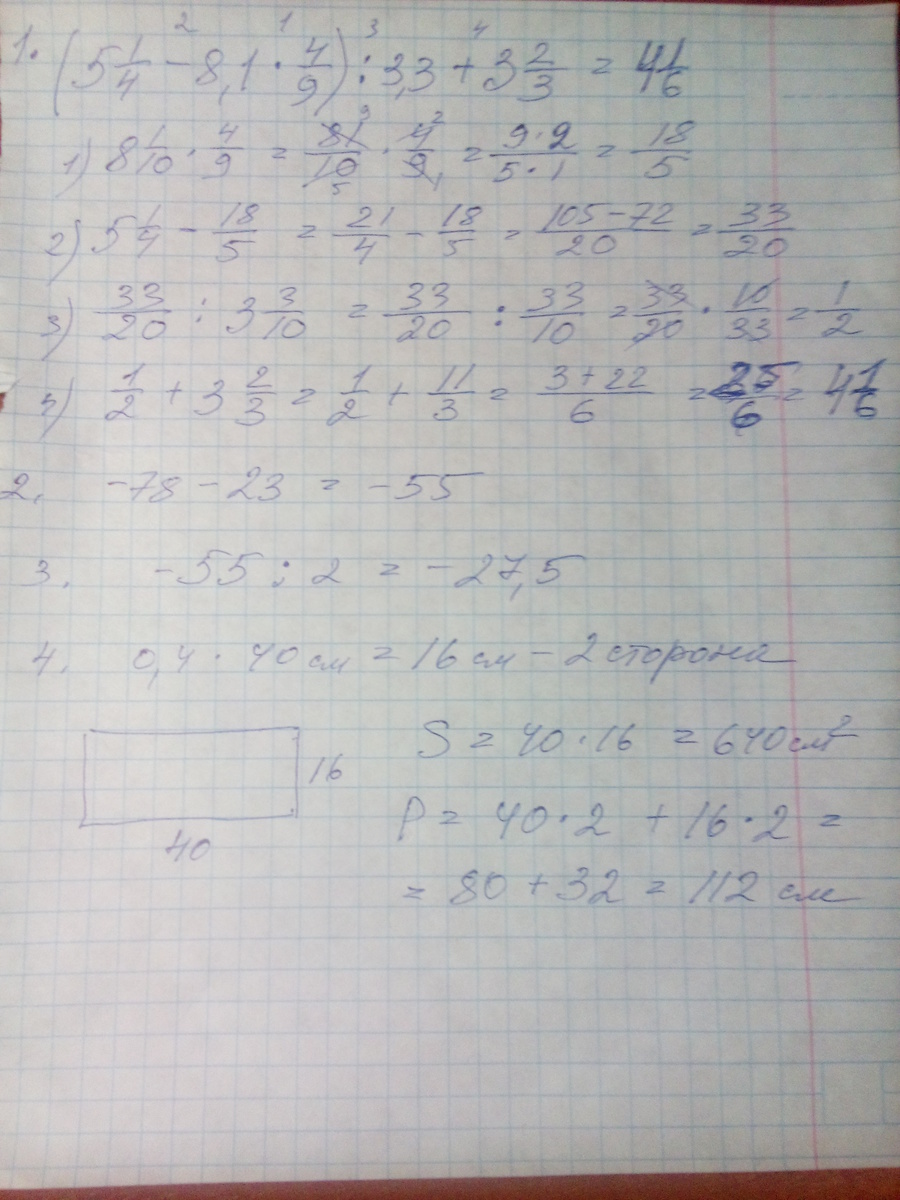 2 1 3 4
1. (5 1/4 - 8,1 · 4/9) : 3,3 + 3 2/3 = 4 1/6
1) 8 1/10 · 4/9 = 81/10 · 4/9 = 9·2/5·1 = 18/5
2) 5 1/4 - 18/5 = 21/4 - 18/5 = 105-72/20 = 33/20
3) 33/20 : 3 3/10 = 33/20 : 33/10 = 33/20 · 10/33 = 1/2
4) 1/2 + 3 2/3 = 1/2 + 11/3 = 3+22/6 = 25/6 = 4 1/6
2. -78 - 23 = -55
3. -55 : 2 = -27,5
4. 0,4 · 40 см = 16 см - 2 сторона
S = 40 · 16 = 640 см²
16
P = 40 · 2 + 16 · 2 =
40
= 80 + 32 = 112 см